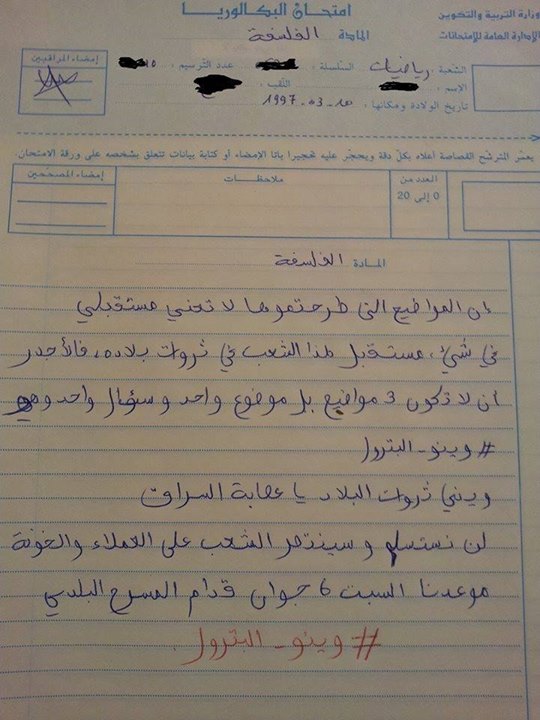 امتحان البكالوريا
وزارة التربية والتكوين
الإدارة العامة للامتحانات
المادة الفلسفة
الشعبة رياضيات السلسلة : عدد الترسيم :
الإسم : اللقب :
تاريخ الولادة ومكانها : 10-03-1997
إمضاء المراقبين
يعمّر المترشّح القصاصة أعلاه بكلّ دقة ويحجّر عليه تحجيرا باتا الإمضاء أو كتابة بيانات تتعلق بشخصه على ورقة الامتحان.
العدد من
0 إلى 20
ملاحظات
إمضاء المصححين
المادة الفلسفة
إن المواضيع التي طرحتموها لا تعني مستقبلي
في شيئ، مستقبل هذا الشعب في ثروات بلاده، فالأجدر
أن لا تكون 3 مواضيع بل موضوع واحد و سؤال واحد وهو
# وينو - البترول
ويني ثروات البلاد يا عصابة السراق
لن نستسلم و سينتصر الشعب على العملاء والخونة
موعدنا السبت 6 جوان قدام المسرح البلدي
# وينو - البترول